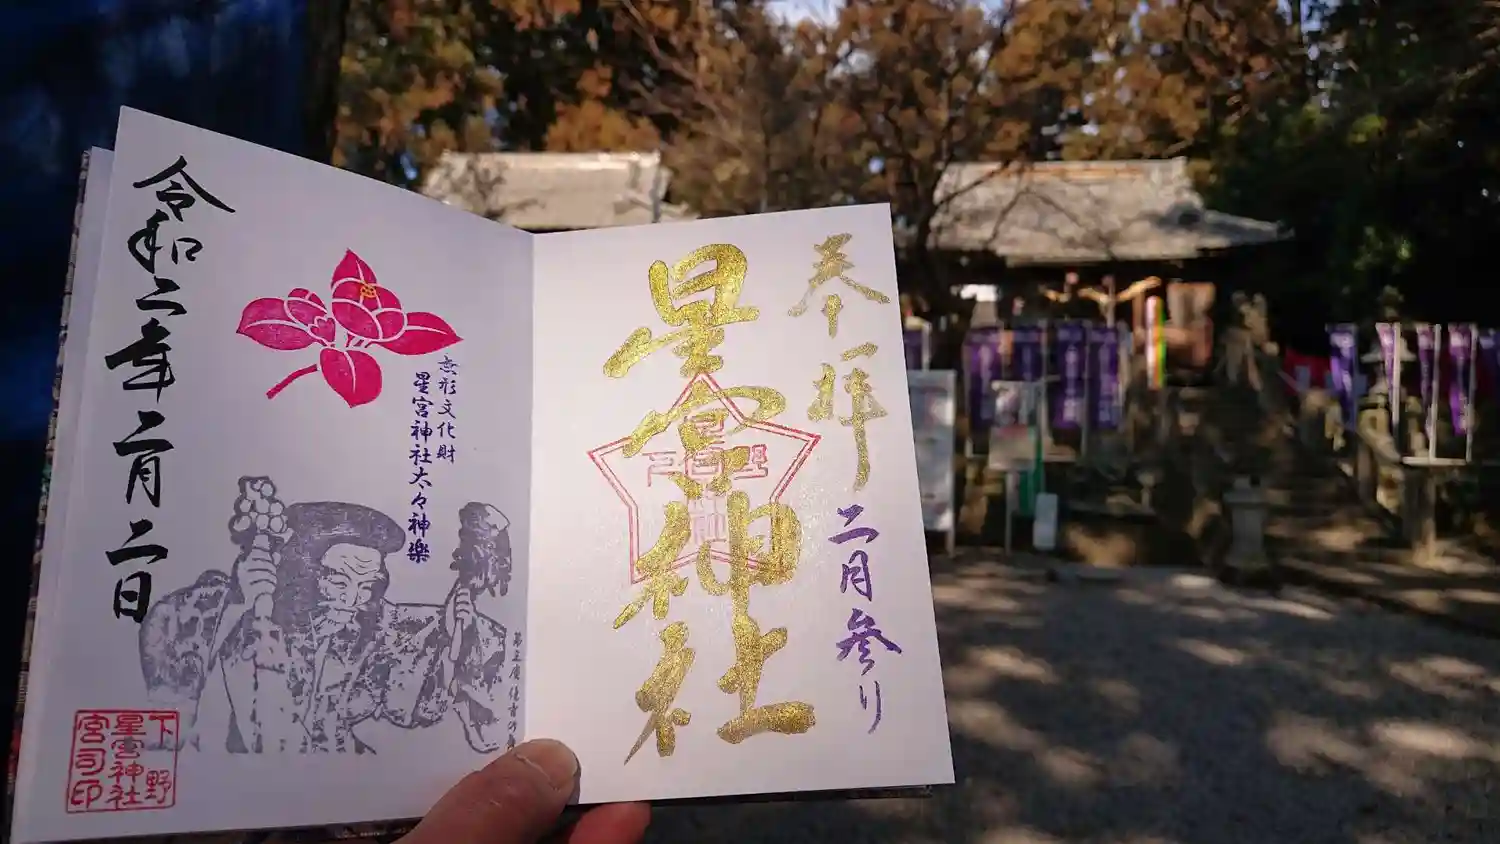 奉拝
二月参り
星宮神社
無形文化財
星宮神社太々神楽
令和二年二月二日
下野
星宮神社
宮司印